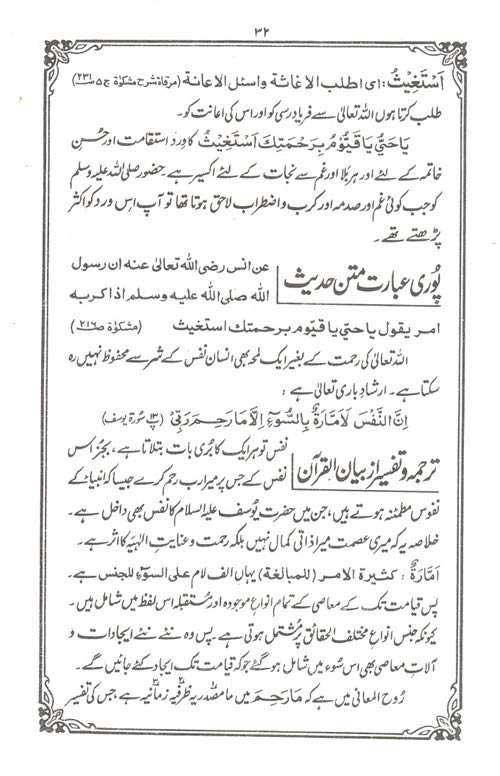 ۳۲
اَسْتَغِيْثُ : ای اطلب الاغاثة واسئل الاعانة (مرقاة شرح مشکوٰة ج ۵ ص ۲۳۱)
طلب کرتا ہوں اللہ تعالیٰ سے فریاد رسی کو اور اس کی اعانت کو۔
یَا حَیُّ یَا قَیُّوْمُ بِرَحْمَتِكَ اَسْتَغِيْثُ کا ورد استقامت اور حُسنِ
خاتمہ کے لئے اور ہر بَلا اور غم سے نجات کے لئے اکسیر ہے۔ حضور صلی اللہ علیہ وسلم
کو جب کوئی غم اور صدمہ اور کرب و اضطراب لاحق ہوتا تھا تو آپ اس ورد کو اکثر
پڑھتے تھے۔
پُوری عبارت متن حدیث
عن انس رضی الله تعالیٰ عنه ان رسول
الله صلی الله علیه وسلم اذا کربه
امر یقول یا حی یا قیّوم برحمتك استغیث (مشکوٰة ص ۲۱۶)
اللہ تعالیٰ کی رحمت کے بغیر ایک لمحہ بھی انسان نفس کے شر سے محفوظ نہیں رہ
سکتا ہے۔ ارشادِ باری تعالیٰ ہے :
اِنَّ النَّفْسَ لَاَمَّارَةٌ بِالسُّوْءِ اِلَّا مَا رَحِمَ رَبِّیْ (پ ۱۳ سُورة یوسف)
ترجمہ و تفسیر از بیان القرآن
نفس تو ہر ایک کا بُری بات بتلاتا ہے، بجز اس
نفس کے جس پر میرا رب رحم کرے جیسا کہ انبیاؑ کے
نفوس مطمئنہ ہوتے ہیں، جن میں حضرت یُوسف علیہ السلام کا نفس بھی داخل ہے۔
خلاصہ یہ کہ میری عصمت میرا ذاتی کمال نہیں بلکہ رحمت و عنایتِ الٰہیہ کا اثر ہے۔
اَمَّارَةٌ : کثیرة الامر (للمبالغة) یہاں الف لام علی السوٓء للجنس ہے۔
پس قیامت تک کے معاصی کے تمام انواع موجودہ اور مُستقبلہ اس لفظ میں شامل ہیں۔
کیونکہ جنس انواعِ مختلف الحقائق پر مُشتمل ہوتی ہے۔ پس وہ نئے نئے ایجادات و
آلاتِ معاصی بھی اس سُوء میں شامل ہوگئے جو کہ قیامت تک ایجاد کئے جائیں گے۔
رُوح المعانی میں ہے کہ مَا رَحِمَ میں ما مصدریہ ظرفیہ زمانیہ ہے، جس کی تفسیر